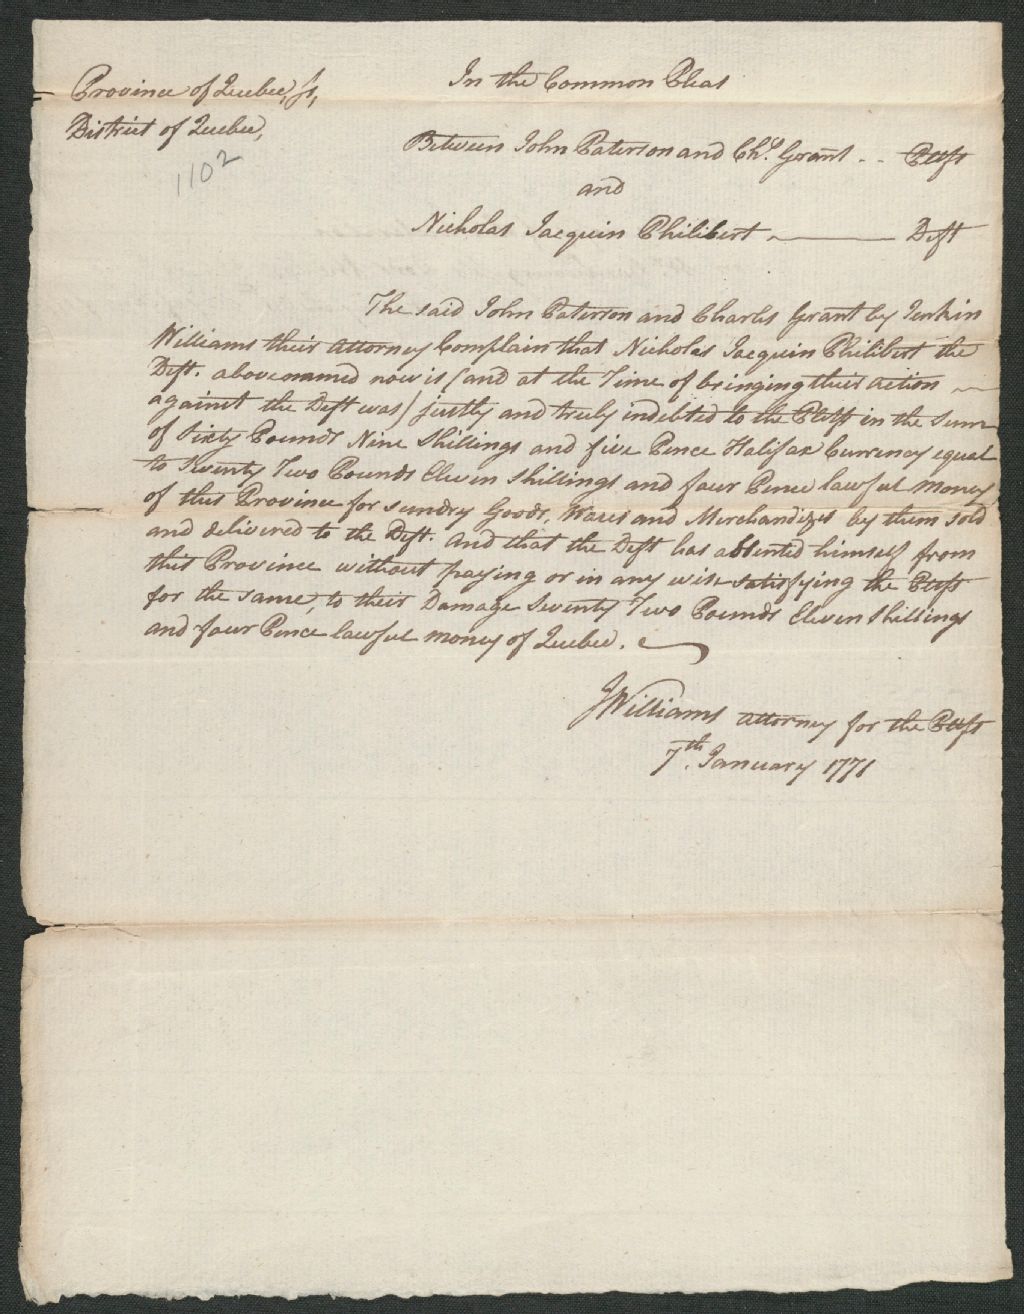 Province of Quebec, ss,
District of Quebec,
1102
In the Common Pleas
Between John Paterson and Chs. Grant - - Pltffs
and
Nicholas Jacquin Philibert ———— Deft
The said John Paterson and Charles Grant by Jenkin
Williams their attorney Complain that Nicholas Jacquin Philibert the
Deft. abovenamed now is (and at the Time of bringing their action
against the Deft was) justly and truly indebted to the Pltffs in the Sum
of Sixty Pounds Nine Shillings and five Pence Halifax Currency equal
to Seventy Two Pounds Eleven Shillings and four Pence lawful money
of this Province for sundry Goods, Wares and Merchandizes by them sold
and delivered to the Deft. And that the Deft has absented himself from
this Province without paying or in any wise satisfying the Pltffs
for the same, to their Damage Seventy Two Pounds Eleven Shillings
and four Pence lawful money of Quebec.
JWilliams attorney for the Pltffs
7th. January 1771